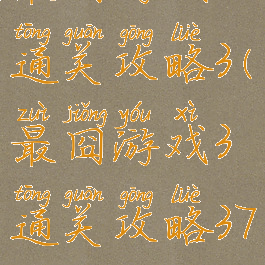 tōng guān gōng lüè
通关攻略3(
zuì jiǒng yóu xì
最囧游戏3
tōng guān gōng lüè
通关攻略37